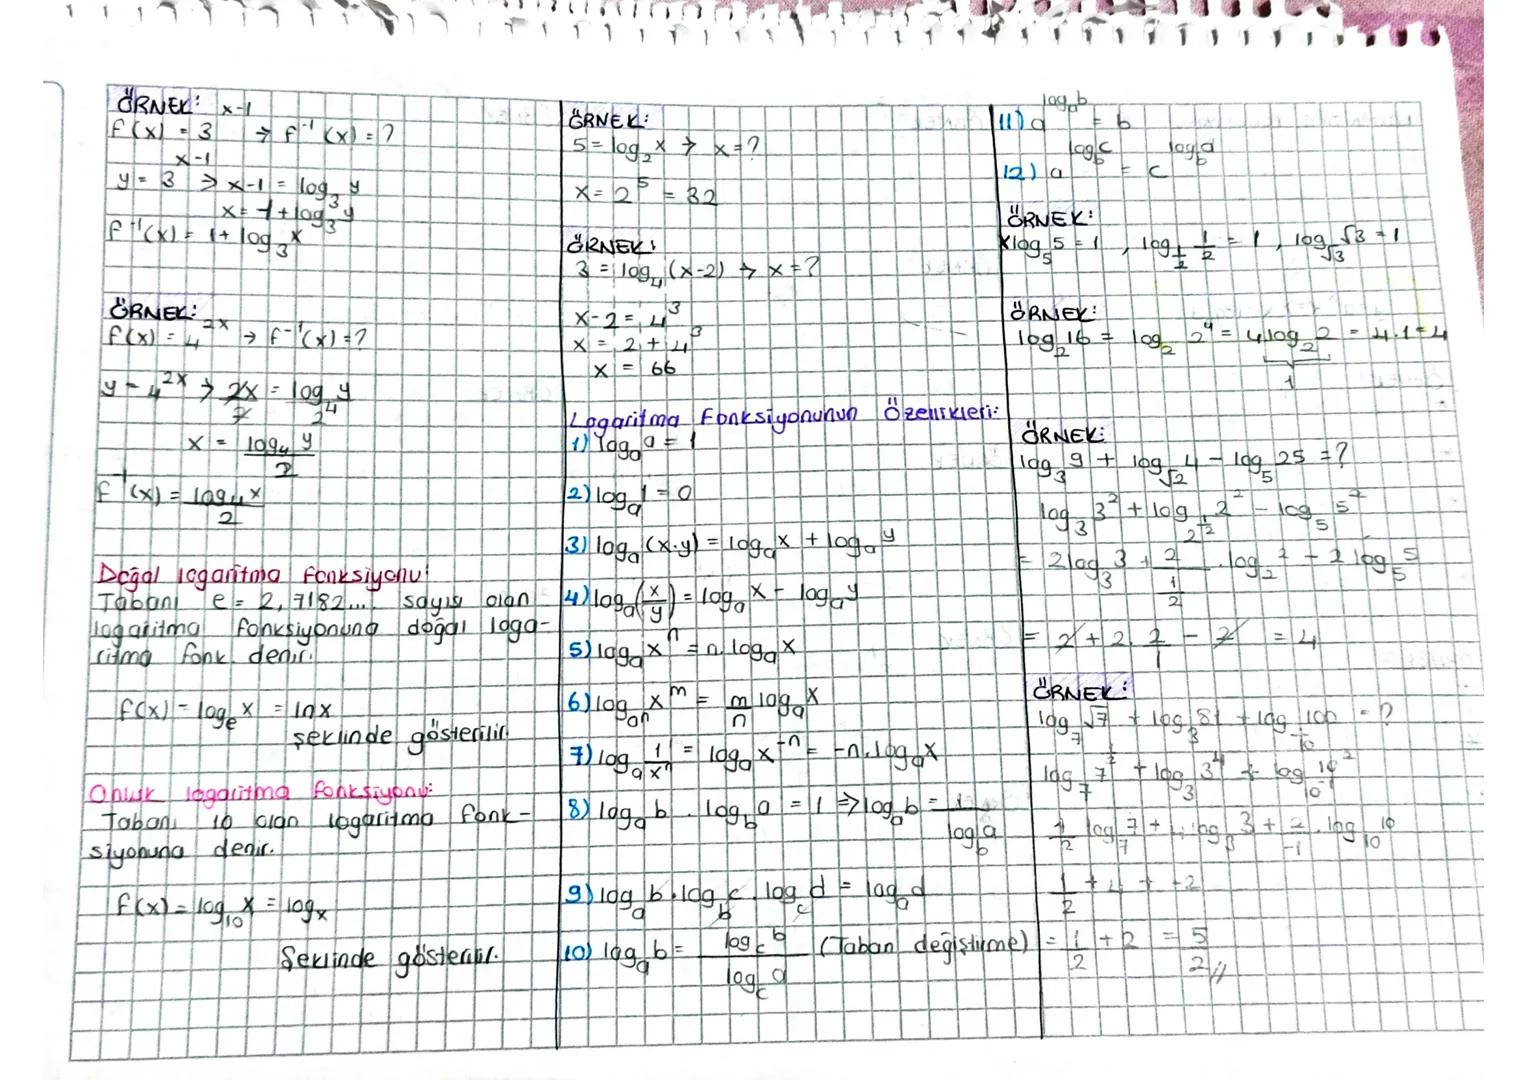 ÖRNEK:
f(x) = 3^(x-1) → f⁻¹(x) = ?
y = 3^(x-1) → x-1 = log₃ y
x = 1 + log₃ y
f⁻¹(x) = 1 + log₃ x
ÖRNEK:
f(x) = 4^(2x) → f⁻¹(x) = ?
y = 4^(2x) → 2x/2 = log₄ y/2
x = log₄ y/2
f⁻¹(x) = log₄ x/2
Doğal logaritma fonksiyonu:
Tabanı e = 2,7182... sayısı olan
logaritma fonksiyonuna doğal loga-
ritma fonk. denir.
f(x) = logₑ x = lnx
şeklinde gösterilir.
Onluk logaritma fonksiyonu:
Tabanı 10 olan logaritma fonk-
siyonuna denir.
f(x) = log₁₀ x = logx
Şeklinde gösterilir.
ÖRNEK:
5 = log₂ x → x = ?
x = 2⁵ = 32
ÖRNEK:
3 = log₄ (x-2) → x = ?
x-2 = 4³
x = 2 + 4³
x = 66
Logaritma Fonksiyonunun Özellikleri:
1) logₐ a = 1
2) logₐ 1 = 0
3) logₐ (x.y) = logₐ x + logₐ y
4) logₐ (x/y) = logₐ x - logₐ y
5) logₐ xⁿ = n. logₐ x
6) log_(aⁿ) x^m = m/n logₐ x
7) logₐ 1/xⁿ = logₐ x⁻ⁿ = -n. logₐ x
8) logₐ b . log_b a = 1 ⇒ logₐ b = 1/log_b a
9) logₐ b . log_b c . log_c d = logₐ d
10) logₐ b = log_c b/log_c a (Taban değiştirme)
11) a^(logₐ b) = b
12) a^(log_b c) = c^(log_b a)
ÖRNEK:
log₅ 5 = 1 , log_(1/2) 1/2 = 1 , log_√3 √3 = 1
ÖRNEK:
log₂ 16 = log₂ 2⁴ = 4.log₂ 2 = 4.1 = 4
1
ÖRNEK:
log₃ 9 + log_√2 4 - log₅ 25 = ?
log₃ 3² + log_(2^(1/2)) 2² - log₅ 5²
= 2log₃ 3 + 2/(1/2) . log₂ 2 - 2 log₅ 5
= 2 + 2. 2/1 - 2 = 4
ÖRNEK:
log₇ √7 + log₃ 81 + log_(1/10) 100 = ?
log₇ 7^(1/2) + log₃ 3⁴ + log_(10⁻¹) 10²
1/2 log₇ 7 + 4.log₃ 3 + 2/-1 . log₁₀ 10
1/2 + 4 + -2
= 1/2 + 2 = 5/2 //